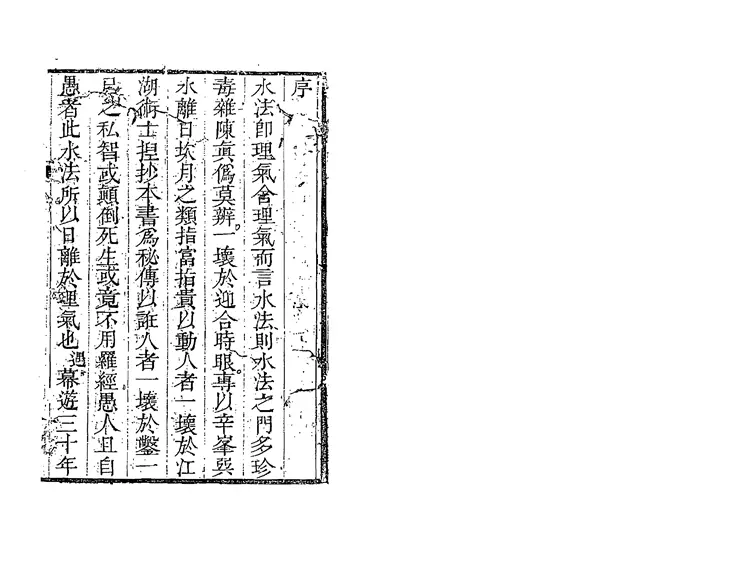 序
水法卽理氣舍理氣而言水法則水法之門多珍
毒雜陳眞僞莫辨一壞於迎合時眼專以辛峯巽
水離日坎月之類指富指貴以動人者一壞於江
湖術士捏抄本書爲秘傳以誑人者一壞於鑿一
己之私智或顚倒死生或竟不用羅經愚人且自
愚者此水法所以日離於理氣也遇幕遊三十年